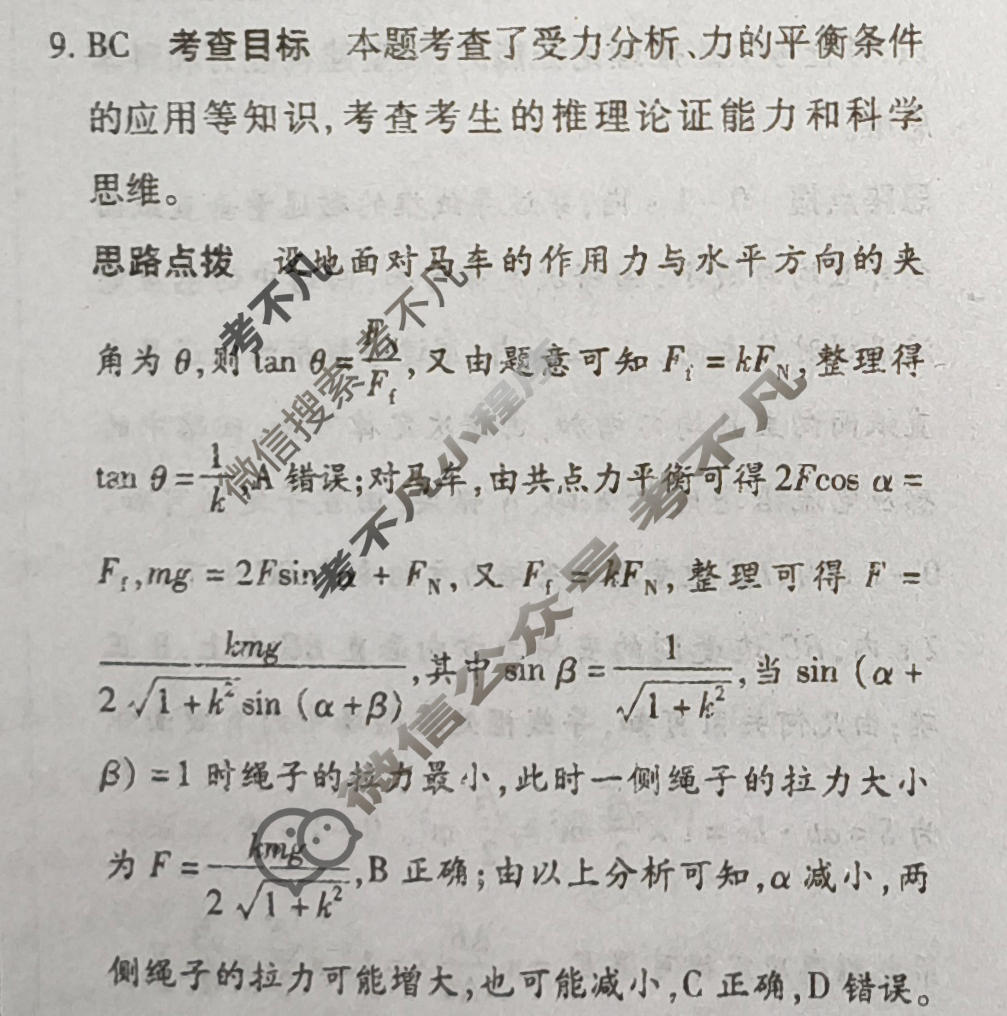 9. BC 考查目标 本题考查了受力分析、力的平衡条件
的应用等知识,考查考生的推理论证能力和科学
思维。
思路点拨 设地面对马车的作用力与水平方向的夹
角为 θ,则 tan θ = F_N/F_f,又由题意可知 F_f = kF_N,整理得
tan θ = 1/k,A 错误;对马车,由共点力平衡可得 2Fcos α =
F_f,mg = 2Fsin α + F_N,又 F_f = kF_N,整理可得 F =
kmg/(2√(1+k²) sin (α+β)),其中 sin β = 1/√(1+k²),当 sin (α +
β) = 1 时绳子的拉力最小,此时一侧绳子的拉力大小
为 F = kmg/(2√(1+k²)),B 正确;由以上分析可知,α 减小,两
侧绳子的拉力可能增大,也可能减小,C 正确,D 错误。
考不凡
微信搜索 考不凡
考不凡小程序
微信公众号 考不凡